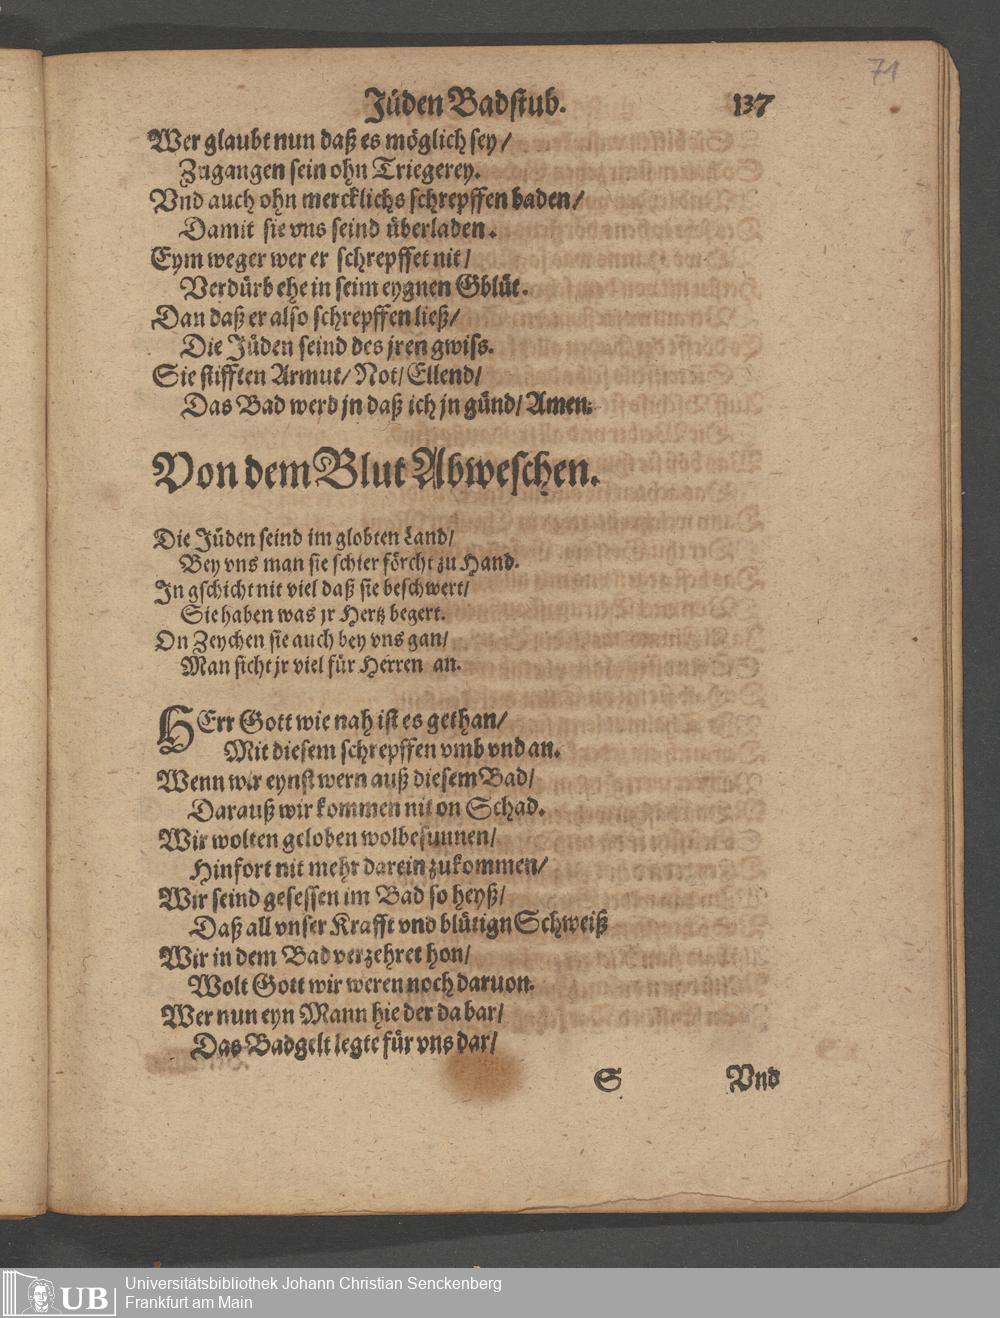 71
Jüden Badstub. 137
Wer glaubt nun daß es möglich sey/
Zugangen sein ohn Triegerey.
Vnd auch ohn mercklichs schrepffen baden/
Damit sie vns seind überladen.
Eym weger wer er schrepffet nit/
Verdürb ehe in seim eygnen Gblüt.
Dan daß er also schrepffen ließ/
Die Jüden seind des jren gwiss.
Sie stifften Armut/ Not/ Ellend/
Das Bad werd jn daß ich jn günd/ Amen.
Von dem Blut Abweschen.
Die Jüden seind im globten Land/
Bey vns man sie schier förcht zu Hand.
In gschicht nit viel daß sie beschwert/
Sie haben was jr Hertz begert.
On Zeychen sie auch bey vns gan/
Man sicht jr viel für Herren an.
HErr Gott wie nah ist es gethan/
Mit diesem schrepffen vmb vnd an.
Wenn wir eynst wern auß diesem Bad/
Darauß wir kommen nit on Schad.
Wir wolten geloben wolbesunnen/
Hinfort nit mehr darein zukommen/
Wir seind gesessen im Bad so heyß/
Daß all vnser Krafft vnd blütign Schweiß
Wir in dem Bad verzehret hon/
Wolt Gott wir weren noch daruon.
Wer nun eyn Mann hie der da bar/
Das Badgelt legte für vns dar/
S Vnd
UB
Universitätsbibliothek Johann Christian Senckenberg
Frankfurt am Main